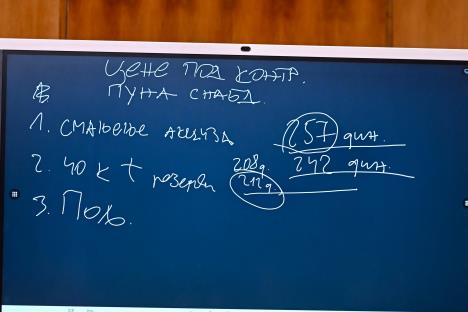 ЦЕНЕ ПОД КОНТР.
ПУНА СНАБД.
1. СМАЊЕЊЕ АКЦИЗА
257 дин.
2. 40 К t резерви
208д.
242 дин.
212д
3. Пољ.